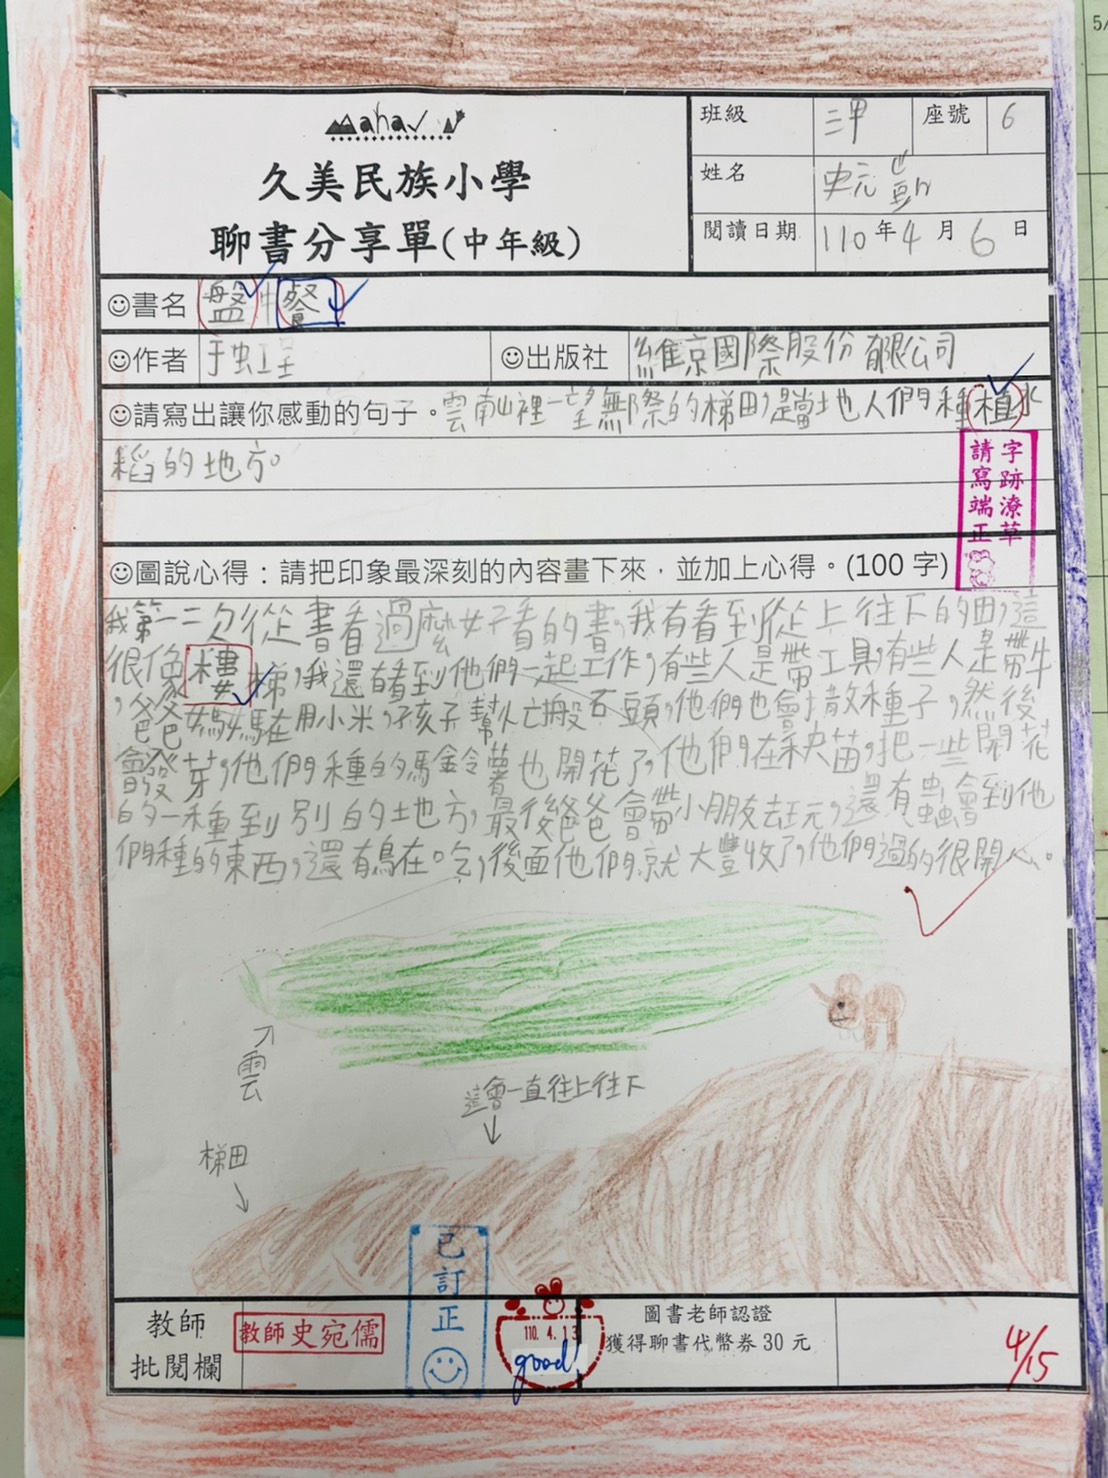 Mahav
久美民族小學
聊書分享單(中年級)
班級 三甲 座號 6
姓名 史元
閱讀日期 110年4月6日
☺書名 盤中餐
☺作者 于虹呈
☺出版社 維京國際股份有限公司
☺請寫出讓你感動的句子。雲南山裡一望無際的梯田,是當地人們種植水
稻的地方。
字跡潦草
請寫端正
☺圖說心得：請把印象最深刻的內容畫下來，並加上心得。(100 字)
我第一二次從書看過麼好看的書,我有看到從上往下的田,這
很像樓梯,我還有看到他們一起工作,有些人是帶工具,有些人是帶牛
,爸爸媽媽在用小米,孩子幫忙搬石頭,他們也會撒散種子,然後
會發芽,他們種的馬鈴薯也開花了,他們在秧苗,把一些開花
的一種到別的地方,最後爸爸會帶小朋友去玩,還有蟲會到他
們種的東西,還有鳥在吃,後面他們就大豐收了,他們過的很開心。
雲
這會一直往上往下
梯田
已訂正
教師
批閱欄
教師史宛儒
110. 4. 13
good!
圖書老師認證
獲得聊書代幣券 30 元
4/15